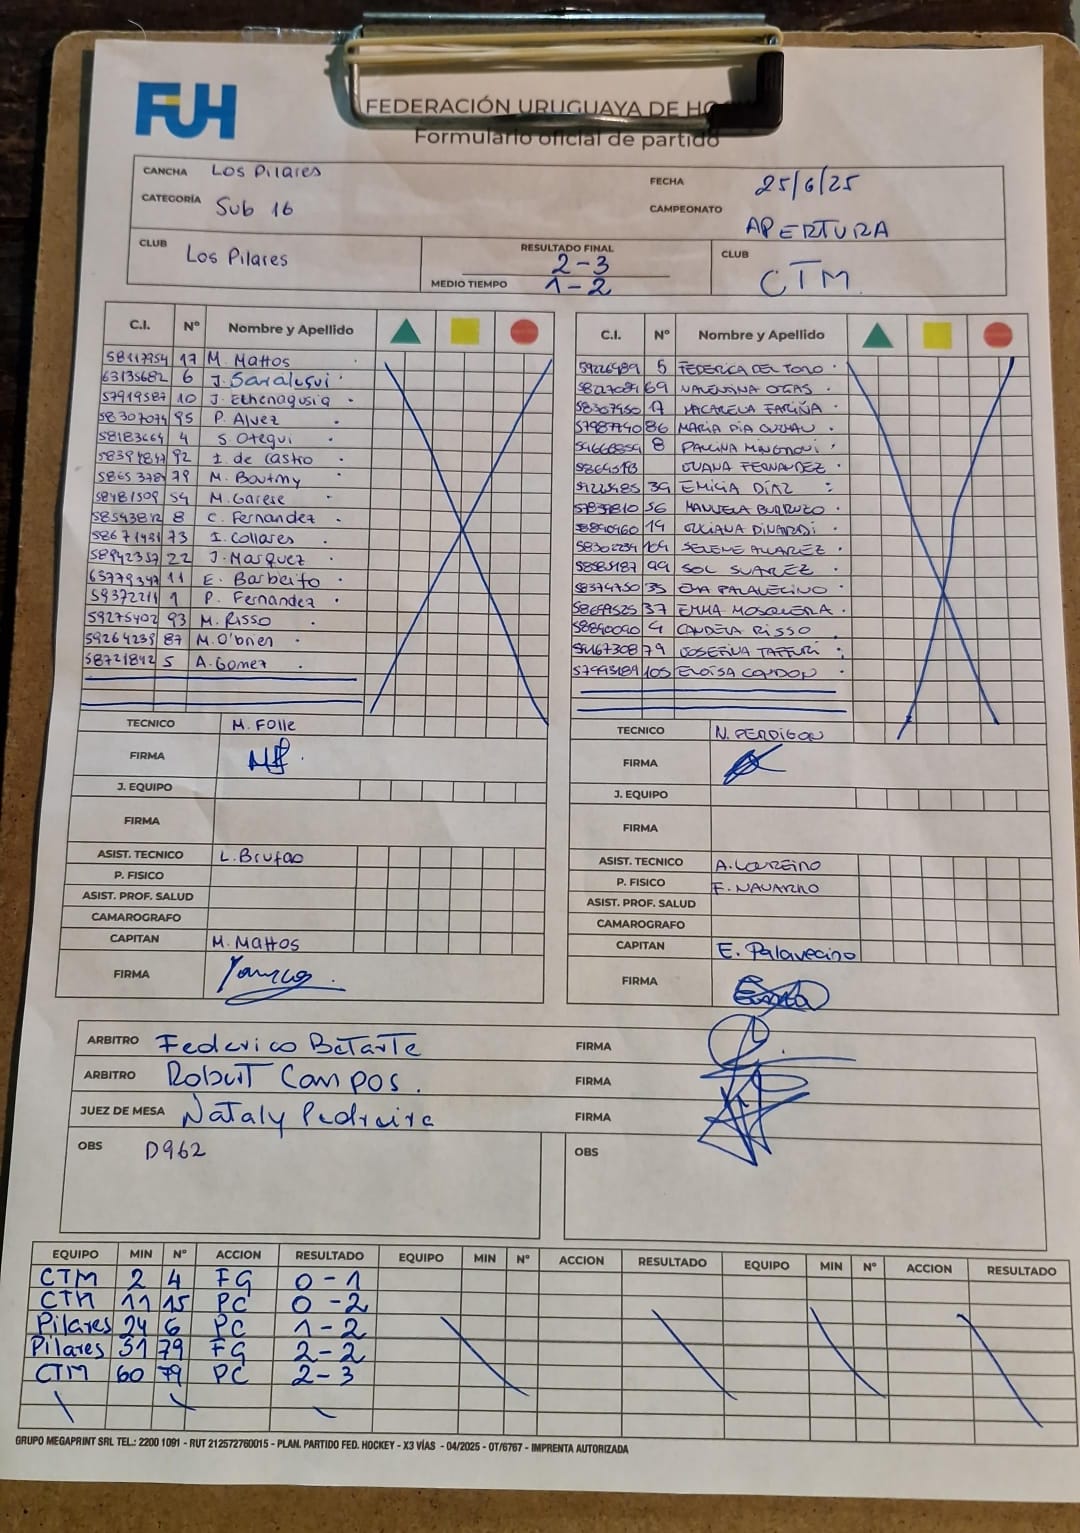 FUH
FEDERACIÓN URUGUAYA DE HO
Formulario oficial de partido
CANCHA Los Pilares
FECHA 25/6/25
CATEGORÍA Sub 16
CAMPEONATO APERTURA
CLUB Los Pilares
RESULTADO FINAL 2-3
MEDIO TIEMPO 1-2
CLUB CTM
C.I. Nº Nombre y Apellido
17 M. Mattos
63135682 6 J. Saralegui
57919587 10 J. Etchenagusia
58307074 95 P. Alvez
58183664 4 S Otegui
92 I. de Castro
79 M. Boutmy
58481509 54 M. Garese
8 C. Fernandez
58671431 73 I. Collares
58942357 22 J. Marquez
65779347 11 E. Barbeito
1 P. Fernandez
59275402 93 M. Risso
59264239 87 M. O'brien
58721842 5 A. Gomez
TECNICO M. Folle
FIRMA
J. EQUIPO
FIRMA
ASIST. TECNICO L. Brufao
P. FISICO
ASIST. PROF. SALUD
CAMAROGRAFO
CAPITAN M. Mattos
FIRMA
C.I. Nº Nombre y Apellido
59226489 5 FEDERICA DEL TORO
69 VALENTINA
58307950 17 MACARELA FARIÑA
57987740 86 MARIA PIA
8 PAULINA
FERNANDEZ
39 EMILIA DÍAZ
56 MANUELA
58890960 14 LUCIANA DINARDI
SELENE ALVAREZ
58585187 99 SOL SUAREZ
58374750 35 EVA PALAVECINO
58699525 37 EMMA MOSQUERA
58890090 4 CANDELA RISSO
79 JOSEFINA TAFFURI
57995189 105 ELOÍSA CONDON
TECNICO N. PERDIGON
FIRMA
J. EQUIPO
FIRMA
ASIST. TECNICO A. LOUREIRO
P. FISICO F. NAVARRO
ASIST. PROF. SALUD
CAMAROGRAFO
CAPITAN E. Palavecino
FIRMA
ARBITRO Federico Batarte FIRMA
ARBITRO Robert Campos. FIRMA
JUEZ DE MESA Nataly Pedreira FIRMA
OBS D962
OBS
EQUIPO MIN Nº ACCION RESULTADO EQUIPO MIN Nº ACCION RESULTADO EQUIPO MIN Nº ACCION RESULTADO
CTM 2 4 FG 0-1
CTM 11 15 PC 0-2
Pilares 24 6 PC 1-2
Pilares 51 79 FG 2-2
CTM 60 79 PC 2-3
GRUPO MEGAPRINT SRL TEL.: 2200 1091 - RUT 212572760015 - PLAN. PARTIDO FED. HOCKEY - X3 VÍAS - 04/2025 - OT/6767 - IMPRENTA AUTORIZADA